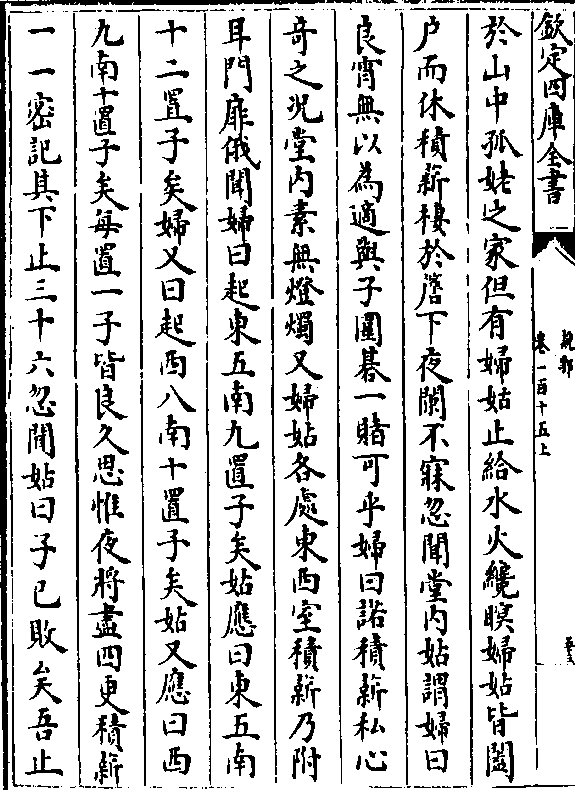 欽定四庫全書
說郛
卷一百十五上
於山中孤姥之家但有婦姑止給水火纔暝婦姑皆闔
户而休積薪棲於簷下夜闌不寐忽聞堂内姑謂婦曰
良宵無以為適與子圍棊一賭可乎婦曰諾積薪私心
竒之况堂内素無燈燭又婦姑各處東西室積薪乃附
耳門扉俄聞婦曰起東五南九置子矣姑應曰東五南
十二置子矣婦又曰起西八南十置子矣姑又應曰西
九南十置子矣每置一子皆良久思惟夜將盡四更積薪
一一密記其下止三十六忽聞姑曰子已敗矣吾止